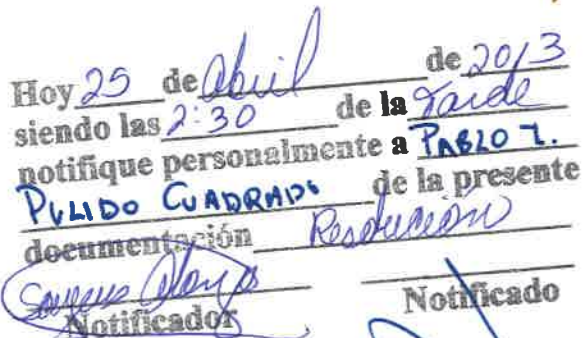 Hoy 25 de abril de 2013
siendo las 2:30 de la Tarde
notifique personalmente a PABLO I.
PULIDO CUADRADO de la presente
documentación Resolución
Notificador Notificado